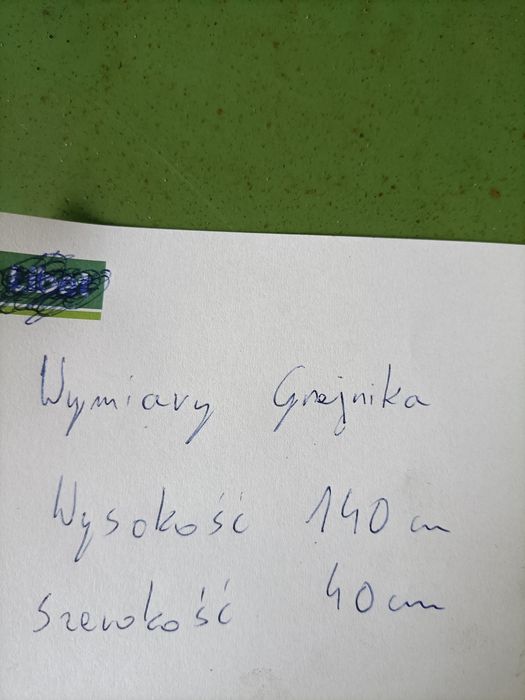 Wymiary Grzejnika
Wysokość 140 cm
Szerokość 40 cm